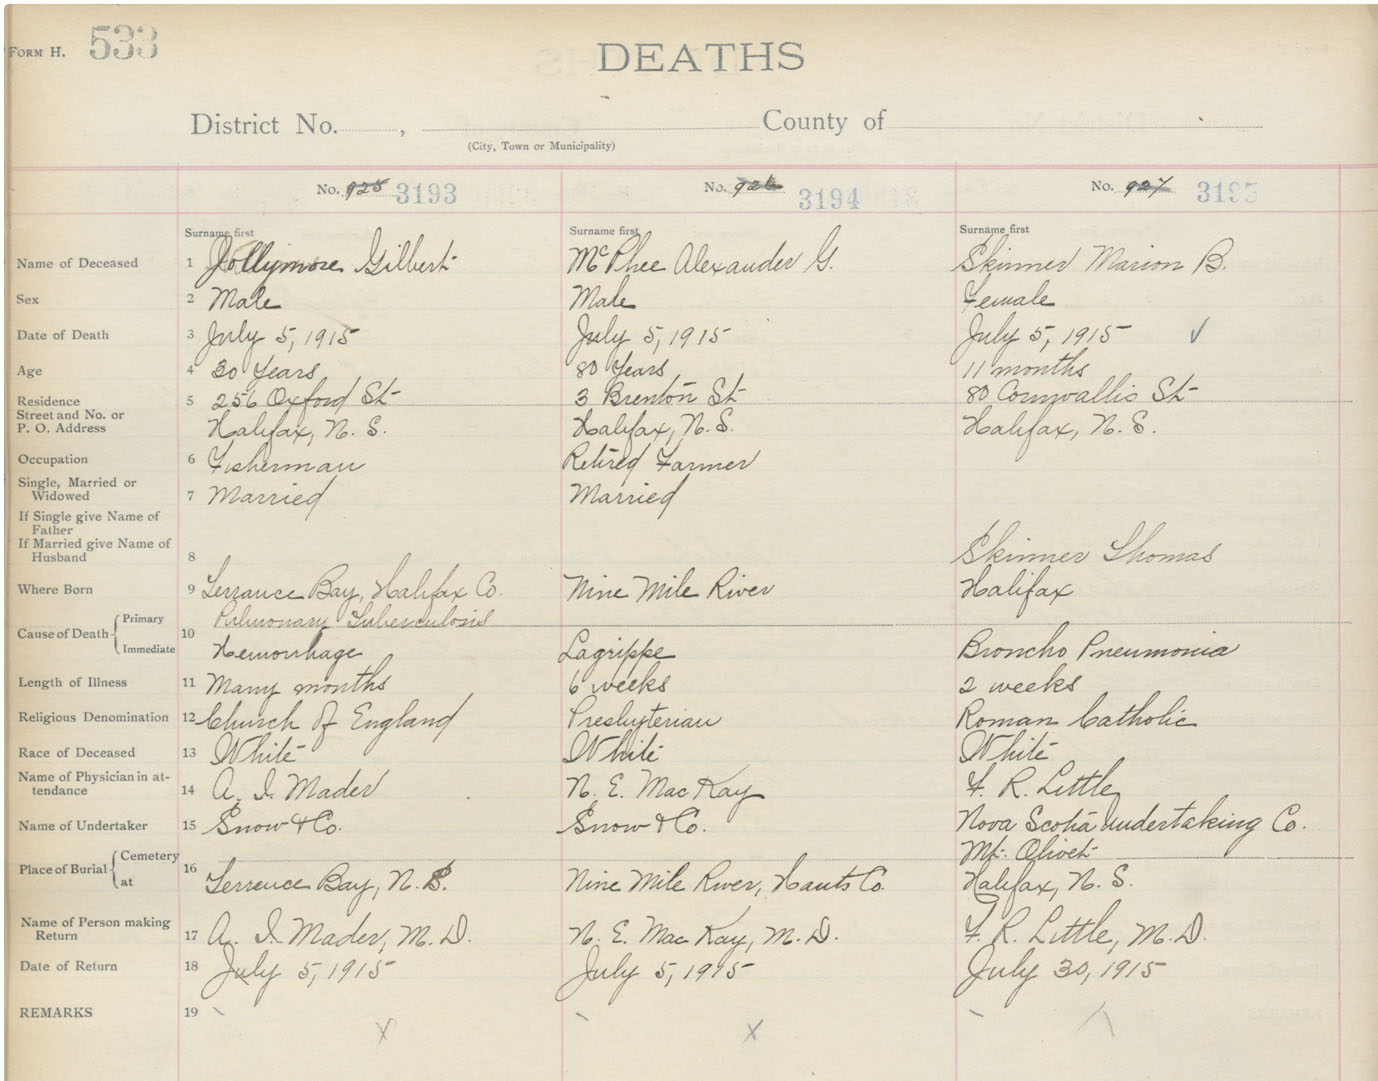 FORM H. 533
DEATHS
District No. , County of
(City, Town or Municipality)
No. 925 3193 No. 926 3194 No. 927 3195
Surname first Surname first Surname first
Name of Deceased 1 Jollymore Gilbert McPhee Alexander G. Skinner Marion B.
Sex 2 Male Male Female
Date of Death 3 July 5, 1915 July 5, 1915 July 5, 1915 ✓
Age 4 30 Years 80 Years 11 months
Residence 5 256 Oxford St 3 Brenton St 80 Cornwallis St
Street and No. or
P. O. Address Halifax, N. S. Halifax, N. S. Halifax, N. S.
Occupation 6 Fisherman Retired Farmer
Single, Married or
Widowed 7 Married Married
If Single give Name of
Father
If Married give Name of
Husband 8 Skinner Thomas
Where Born 9 Terrance Bay, Halifax Co. Nine Mile River Halifax
Cause of Death Primary 10 Pulmonary Tuberculosis
Immediate Hemorrhage Lagrippe Broncho Pneumonia
Length of Illness 11 Many months 6 weeks 2 weeks
Religious Denomination 12 Church of England Presbyterian Roman Catholic
Race of Deceased 13 White White White
Name of Physician in at-
tendance 14 A. I. Mader N. E. MacKay F. R. Little
Name of Undertaker 15 Snow & Co. Snow & Co. Nova Scotia Undertaking Co.
Place of Burial Cemetery 16 Mt. Olivet
at Terrence Bay, N. S. Nine Mile River, Hants Co. Halifax, N. S.
Name of Person making
Return 17 A. I. Mader, M. D. N. E. MacKay, M. D. F. R. Little, M. D.
Date of Return 18 July 5, 1915 July 5, 1915 July 30, 1915
REMARKS 19
X X